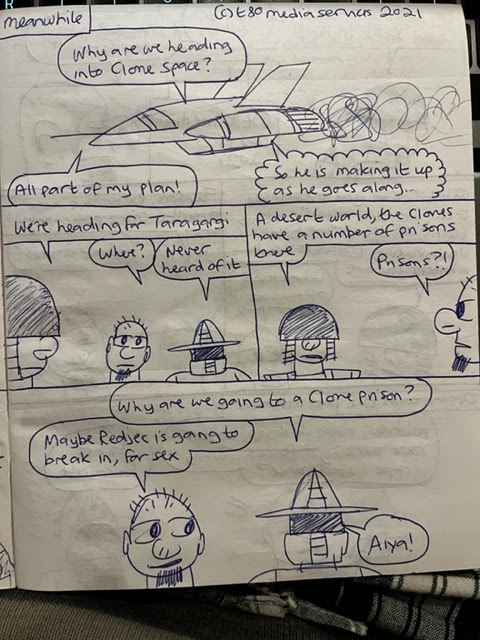 meanwhile
(C) t80 mediaservices 2021
Why are we heading
into Clone Space?
All part of my plan!
So he is making it up
as he goes along...
We're heading for Taragargi
Where?
Never
heard of it
A desert world, the Clones
have a number of prisons
there
Prisons?!
Why are we going to a Clone prison?
Maybe Redjec is going to
break in, for sex
Aiya!